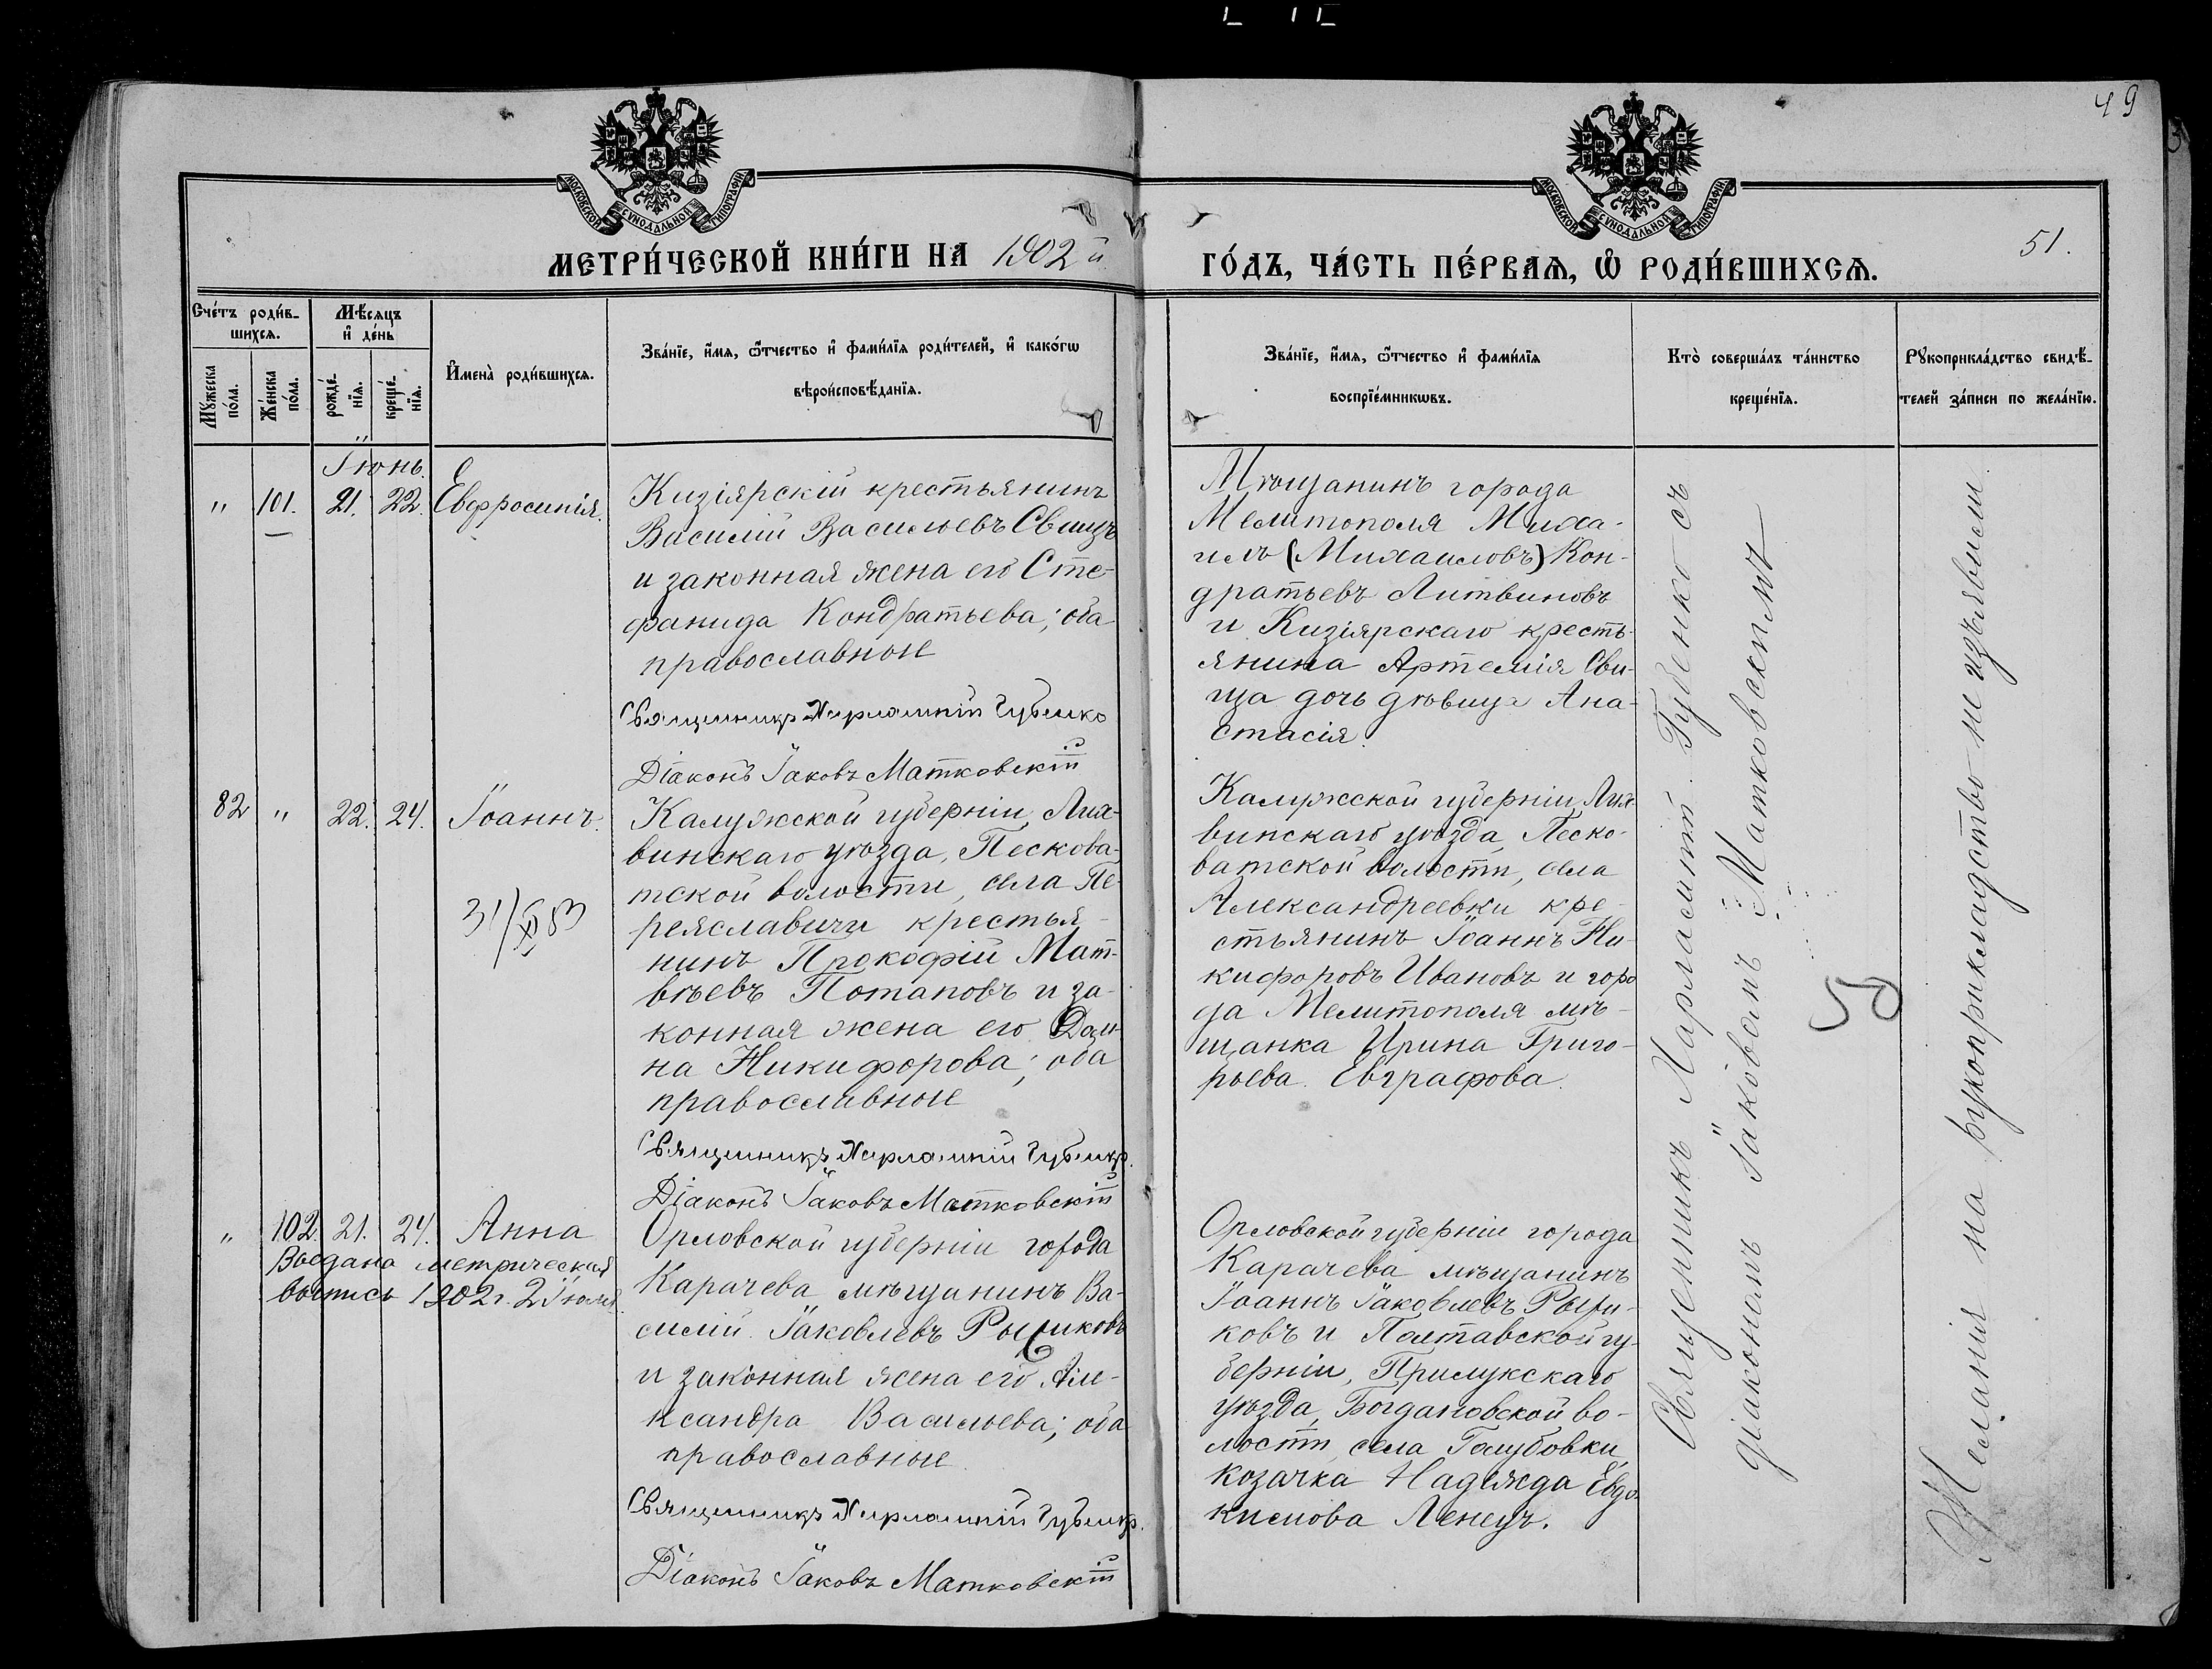 49
МОСКОВСКОЙ СУНОДАЛЬНОЙ ТИПОГРАФІИ
МОСКОВСКОЙ СУНОДАЛЬНОЙ ТИПОГРАФІИ
МЕТРИ́ЧЕСКОЙ КНИ́ГИ НА 1902 й
ГО́ДЪ, ЧА́СТЬ ПЕ́РВАѦ, Ѽ РОДИ́ВШИХСѦ.
51.
Сче́тъ роди́в-
шихсѧ.
Мꙋ́жеска
по́ла.
Же́нска
по́ла.
Мѣ́сѧцъ
и҆ де́нь
рожде́-
нїѧ.
креще́-
нїѧ.
И҆мена̀ роди́вшихсѧ.
Зва́нїе, и҆́мѧ, ѿтчество и҆ фами́лїѧ роди́телей, и҆ како́гѡ
вѣроисповѣ́данїѧ.
Зва́нїе, и҆́мѧ, ѿтчество и҆ фами́лїѧ
воспрїе́мникѡвъ.
Кто̀ соверша́лъ та́инство
креще́нїѧ.
Рꙋкоприкла́дство свидѣ́-
телей за́писи по жела́нїю.
Іюнь.
" 101. 21. 22. Евфросинія.
Кизіярскій крестьянинъ
Василій Васильевъ Свищъ
и законная жена его Сте-
фанида Кондратьева; оба
православные
Священникъ Харлампій Губенко
Діаконъ Іаковъ Матковскій
Мѣщанинъ города
Мелитополя Миха-
илъ (Михаиловъ) Кон-
дратьевъ Литвиновъ
и Кизіярскаго кресть-
янина Артемія Сви-
ща дочь дѣвица Ана-
стасія.
82 " 22. 24. Іоаннъ.
31/XI 83
Калужской губерніи, Лих-
винскаго уѣзда, Пескова-
тской волости, села Пе-
реяславичи крестья-
нинъ Прокофій Мат-
вѣевъ Потаповъ и за-
конная жена его Дом-
на Никифорова; оба
православные
Священникъ Харлампій Губенко.
Діаконъ Іаковъ Матковскій
Калужской губерніи, Лих-
винскаго уѣзда, Песко-
ватской волости, села
Александреевки кре-
стьянинъ Іоаннъ Ни-
кифоровъ Ивановъ и горо
да Мелитополя мѣ-
щанка Ирина Григо-
рьева Евграфова.
" 102. 21. 24. Анна
Выдана метрическая
выпись 1902 г. 2 Іюля
Орловской губерніи города
Карачева мѣщанинъ Ва-
силій Іаковлевъ Рыжиковъ
и законная жена его Але-
ксандра Васильева; оба
православные
Священникъ Харлампій Губенко.
Діаконъ Іаковъ Матковскій
Орловской губерніи города
Карачева мѣщанинъ
Іоаннъ Іаковлевъ Рыжи-
ковъ и Полтавской гу-
берніи, Прилукскаго
уѣзда, Богдановской во-
лости, села Голубовки
козачка Надежда Евдо-
кимова Ленецъ.
Священникъ Харлампій Губенко съ
діакономъ Іаковомъ Матковскимъ
50
Желанія на рукоприкладство не изъявили